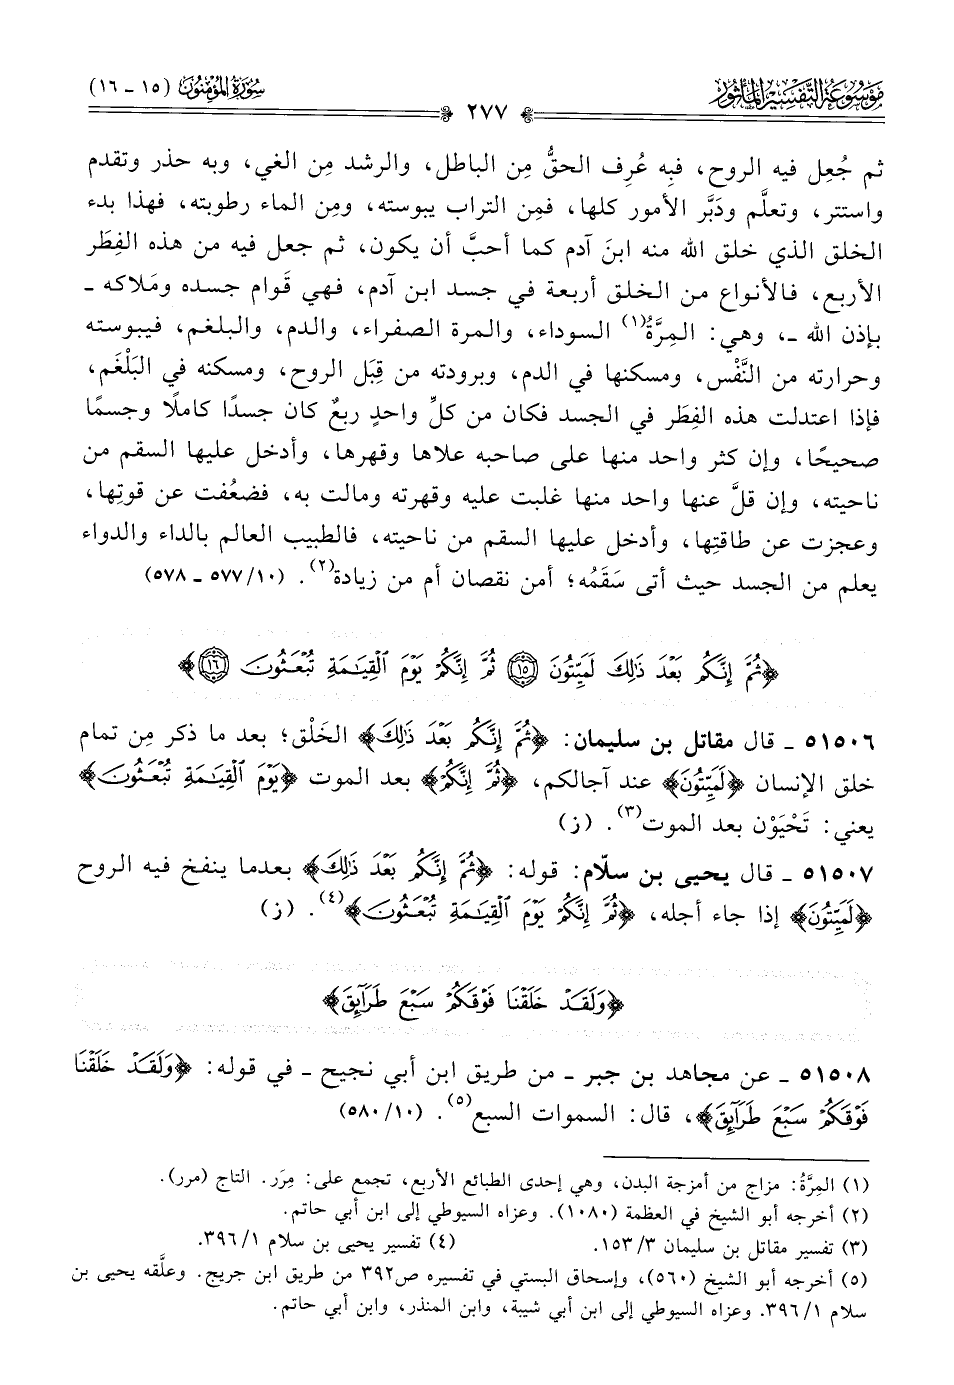 موسوعة التفسير المأثور
٢٧٧
سورة المؤمنون (١٥ - ١٦)
ثم جُعل فيه الروح، فبِه عُرِف الحقُّ مِن الباطل، والرشد مِن الغي، وبه حذر وتقدم
واستتر، وتعلَّم ودَبَّر الأمور كلها، فمِن التراب يبوسته، ومِن الماء رطوبته، فهذا بدء
الخلق الذي خلق الله منه ابنَ آدم كما أحبَّ أن يكون، ثم جعل فيه من هذه الفِطَر
الأربع، فالأنواع من الخلق أربعة في جسد ابن آدم، فهي قَوام جسده ومَلاكه -
بإذن الله -، وهي: المِرَّةُ(١) السوداء، والمرة الصفراء، والدم، والبلغم، فيبوسته
وحرارته من النَّفْس، ومسكنها في الدم، وبرودته من قِبَل الروح، ومسكنه في البَلْغَم،
فإذا اعتدلت هذه الفِطَر في الجسد فكان من كلِّ واحدٍ ربعٌ كان جسدًا كاملًا وجسمًا
صحيحًا، وإن كثر واحد منها على صاحبه علاها وقهرها، وأدخل عليها السقم من
ناحيته، وإن قلَّ عنها واحد منها غلبت عليه وقهرته ومالت به، فضعُفت عن قوتِها،
وعجزت عن طاقتِها، وأدخل عليها السقم من ناحيته، فالطبيب العالم بالداء والدواء
يعلم من الجسد حيث أتى سَقَمُه؛ أمن نقصان أم من زيادة(٢). (١٠/ ٥٧٧ - ٥٧٨)
﴿ثُمَّ إِنَّكُم بَعْدَ ذَٰلِكَ لَمَيِّتُونَ ١٥ ثُمَّ إِنَّكُمْ يَوْمَ الْقِيَامَةِ تُبْعَثُونَ ١٦﴾
٥١٥٠٦ - قال مقاتل بن سليمان: ﴿ثُمَّ إِنَّكُم بَعْدَ ذَٰلِكَ﴾ الخَلْق؛ بعد ما ذكر مِن تمام
خلق الإنسان ﴿لَمَيِّتُونَ﴾ عند آجالكم، ﴿ثُمَّ إِنَّكُمْ﴾ بعد الموت ﴿يَوْمَ الْقِيَامَةِ تُبْعَثُونَ﴾
يعني: تَحْيَوْن بعد الموت(٣). (ز)
٥١٥٠٧ - قال يحيى بن سلّام: قوله: ﴿ثُمَّ إِنَّكُم بَعْدَ ذَٰلِكَ﴾ بعدما ينفخ فيه الروح
﴿لَمَيِّتُونَ﴾ إذا جاء أجله، ﴿ثُمَّ إِنَّكُمْ يَوْمَ الْقِيَامَةِ تُبْعَثُونَ﴾(٤). (ز)
﴿وَلَقَدْ خَلَقْنَا فَوْقَكُمْ سَبْعَ طَرَآئِقَ﴾
٥١٥٠٨ - عن مجاهد بن جبر - من طريق ابن أبي نجيح - في قوله: ﴿وَلَقَدْ خَلَقْنَا
فَوْقَكُمْ سَبْعَ طَرَآئِقَ﴾، قال: السموات السبع(٥). (١٠/ ٥٨٠)
(١) المِرَّةُ: مزاج من أمزجة البدن، وهي إحدى الطبائع الأربع، تجمع على: مِرَر. التاج (مرر).
(٢) أخرجه أبو الشيخ في العظمة (١٠٨٠). وعزاه السيوطي إلى ابن أبي حاتم.
(٣) تفسير مقاتل بن سليمان ٣/ ١٥٣. (٤) تفسير يحيى بن سلام ١/ ٣٩٦.
(٥) أخرجه أبو الشيخ (٥٦٠)، وإسحاق البستي في تفسيره ص٣٩٢ من طريق ابن جريج. وعلَّقه يحيى بن
سلام ١/ ٣٩٦. وعزاه السيوطي إلى ابن أبي شيبة، وابن المنذر، وابن أبي حاتم.